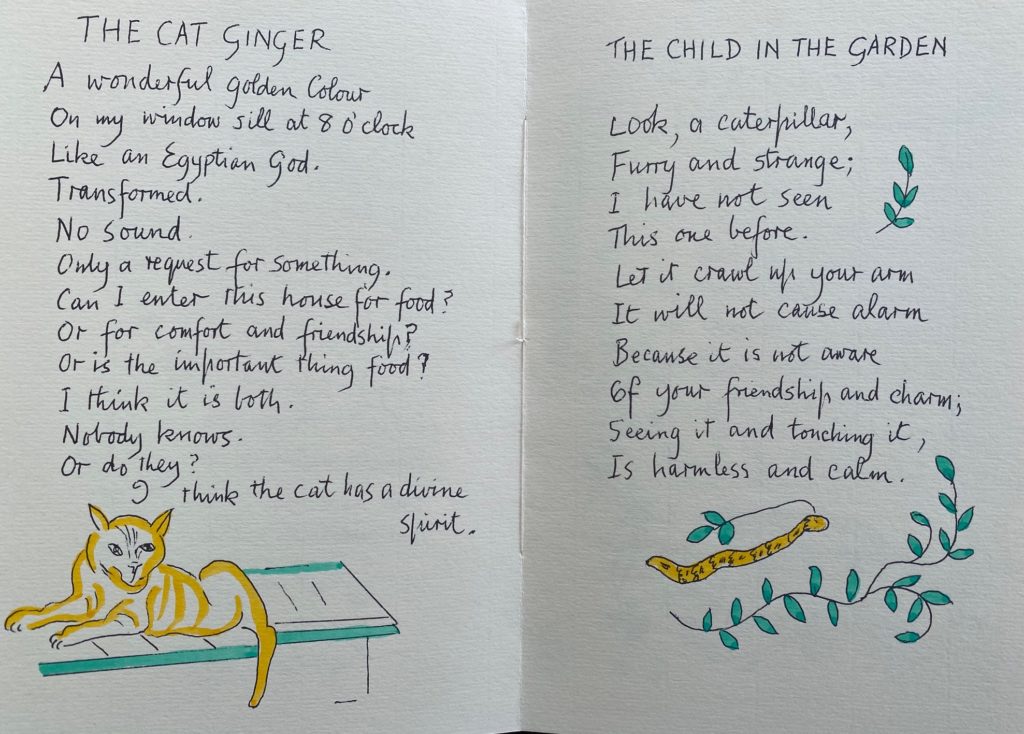 THE CAT GINGER
A wonderful golden Colour
On my window sill at 8 o'clock
Like an Egyptian God.
Transformed.
No sound.
Only a request for something.
Can I enter this house for food?
Or for comfort and friendship?
Or is the important thing food?
I think it is both.
Nobody knows.
Or do they?
I think the cat has a divine
spirit.
THE CHILD IN THE GARDEN
Look, a caterpillar,
Furry and strange;
I have not seen
This one before.
Let it crawl up your arm
It will not cause alarm
Because it is not aware
Of your friendship and charm;
Seeing it and touching it,
Is harmless and calm.